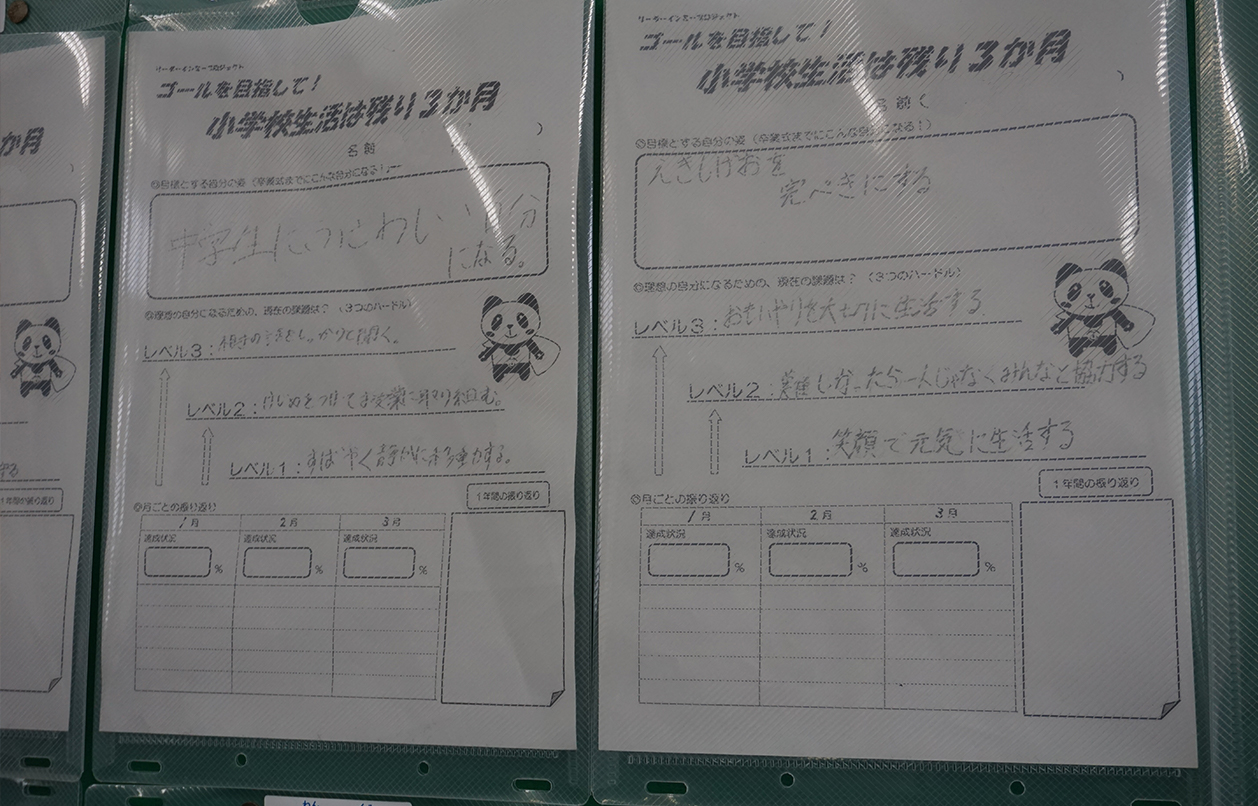 か月
守る
1年間の振り返り
リーダーインミープロジェクト
ゴールを目指して!
小学校生活は残り3か月
名前
)
◎目標とする自分の姿(卒業式までにこんな自分になる!)
中学生にふさわしい自分
になる。
◎理想の自分になるための、現在の課題は?(3つのハードル)
レベル3:相手の をしっかりと聞く。
レベル2:けじめをつけて授業に取り組む。
レベル1:すばやく静かに行動する。
◎月ごとの振り返り
1年間の振り返り
1月 2月 3月
達成状況 達成状況 達成状況
% % %
リーダーインミープロジェクト
ゴールを目指して!
小学校生活は残り3か月
名前(
)
◎目標とする自分の姿(卒業式までにこんな自分になる!)
えきしげおを
完ぺきにする
◎理想の自分になるための、現在の課題は?(3つのハードル)
レベル3:おもいやりを大切に生活する
レベル2:難しかったら一人じゃなくみんなと協力する
レベル1:笑顔で元気に生活する
◎月ごとの振り返り
1年間の振り返り
1月 2月 3月
達成状況 達成状況 達成状況
% % %